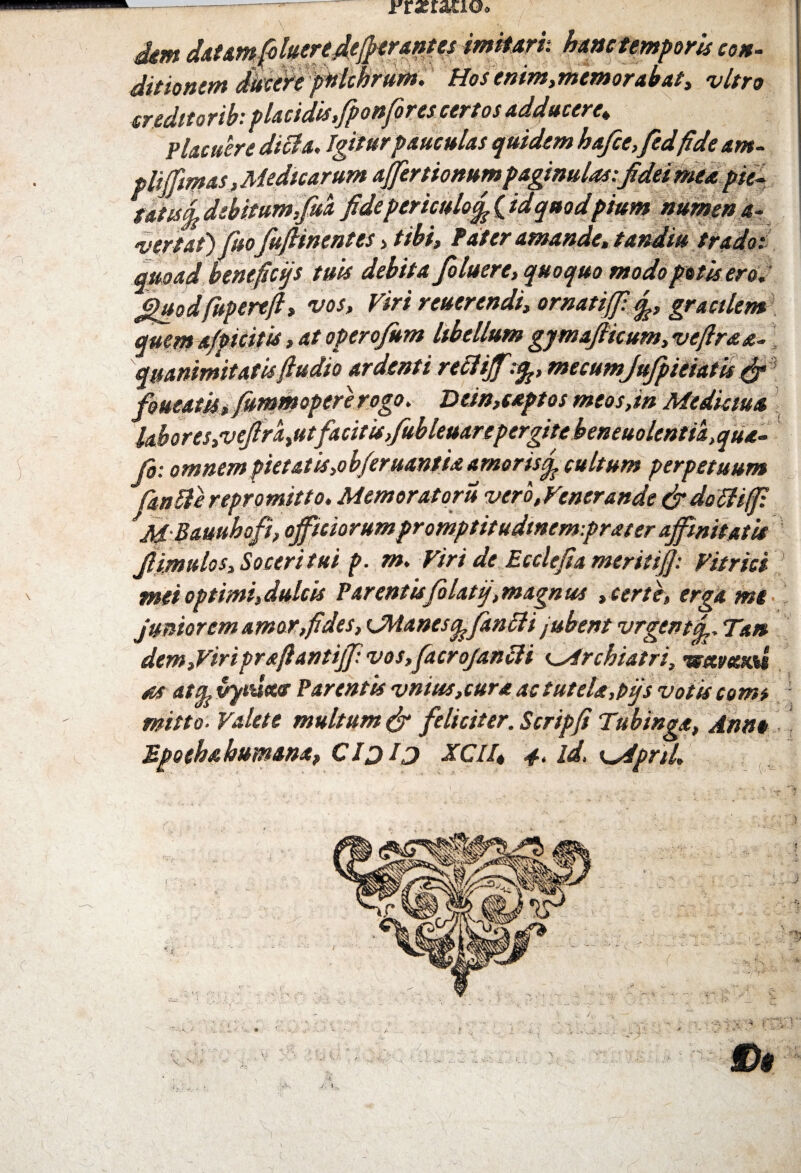 Præfatio.
dem datam soluere desperantes imitari: hanc temporis con-
ditionem ducere pulchrum. Hos enim, memorabat, vltro
creditorib: placidis, sponsores certos adducere.
Placuêre dicta. Igitur pauculas quidem hasce, sed fide am-
plissimas, Medicarum assertionum paginulas: fidei meæ pie-
tatisq́; debitum, suâ fide periculoq́; (id quod pium numen a-
vertat) suo sustinentes, tibi, Pater amande, tandiu trado:
quoad beneficijs tuis debita soluere, quoquo modo potis ero.
Quod superest, vos, Viri reuerendi, ornatiss: q́;, gracilem
quem aspicitis, at operosum libellum gymasticum, vestra æ-
quanimitatis studio ardenti rectiss: q́;, mecum suspiciatis &
foueatis, summoperè rogo. Dein, cæptos meos, in Medictua
labores, vestrâ, ut facitis, subleuare pergite beneuolentiâ, quæ-
so: omnem pietatis, observantiæ amorisq́; cultum perpetuum
sanctè repromitto. Memoratorũ verò, Venerande & doctiss:
M. Bauuhofi, officiorum promptitudinem: præter affinitatis
stimulos, Soceri tui p. m. Viri de Ecclesia meritiss: Vitrici
mei optimi, dulcis Parentis solatij, magnus, certè, erga me
juniorem amor, fides, Manesq́; sancti jubent vrgentq́;. Tan
dem, Viri præstantiss: vos, sacrosancti Archiatri, πανακεί
ας atq́; ὑγιείας Parentis vnius, curæ ac tutelæ, pijs votis com,
mitto. Valete multum & feliciter. Scripsi Tubingæ, Anno
Epochæ humanæ, CIↃ IↃ XCII. 4. Id. April.
De